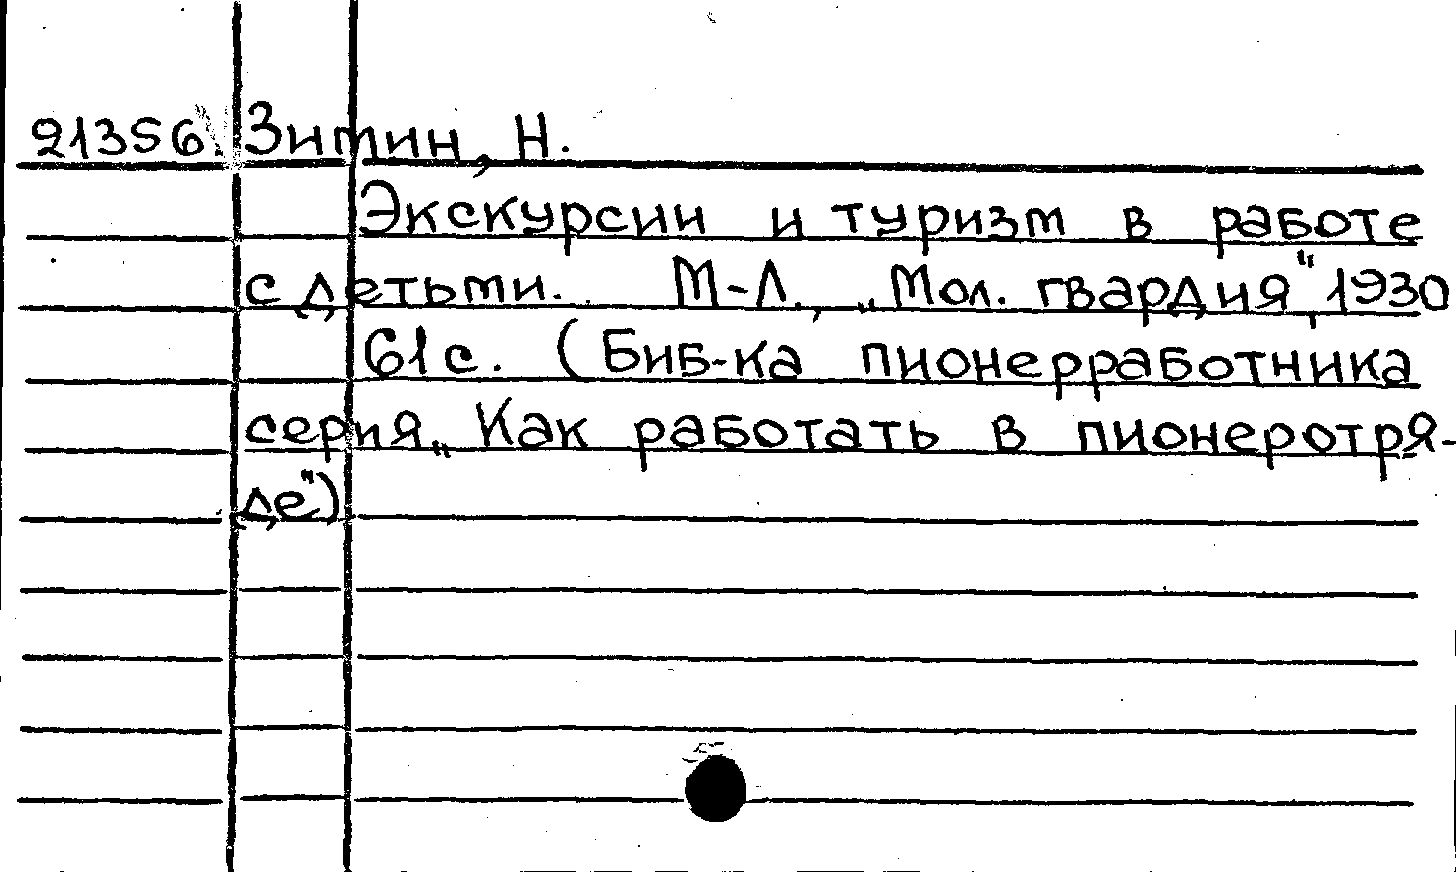 21356. Зимин, Н.
Экскурсии и туризм в работе
с детьми. М-Л., „Мол. гвардия", 1930
61с. (Биб-ка пионерработника
серия „Как работать в пионеротря-
де")